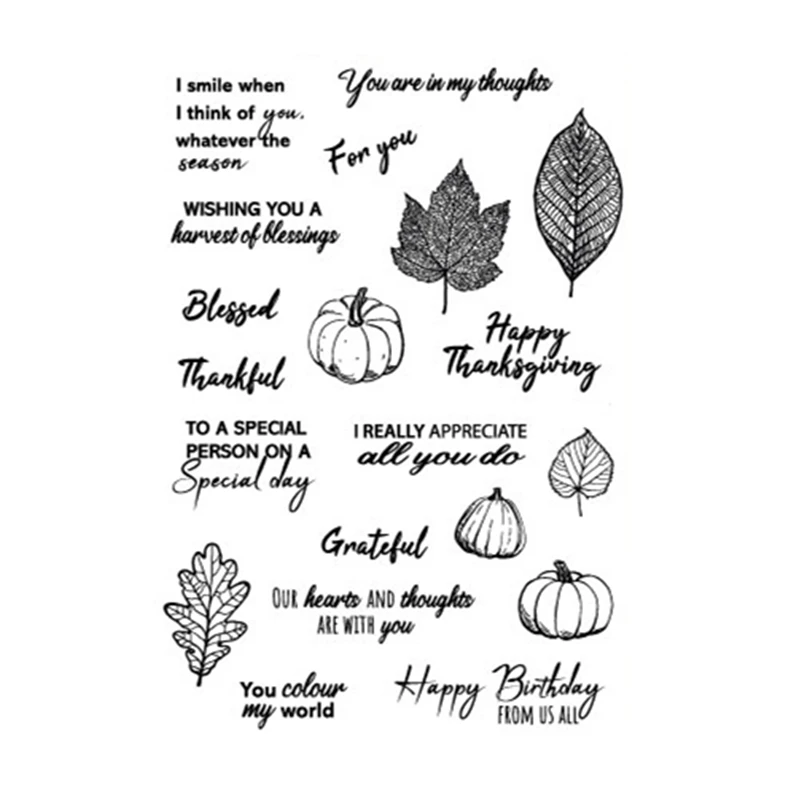 I smile when
I think of you.
whatever the
season
You are in my thoughts
For you
WISHING YOU A
harvest of blessings
Blessed
Thankful
Happy
Thanksgiving
TO A SPECIAL
PERSON ON A
Special day
I REALLY APPRECIATE
all you do
Grateful
OUR hearts AND thoughts
ARE WITH you
You colour
my world
Happy Birthday
FROM US ALL